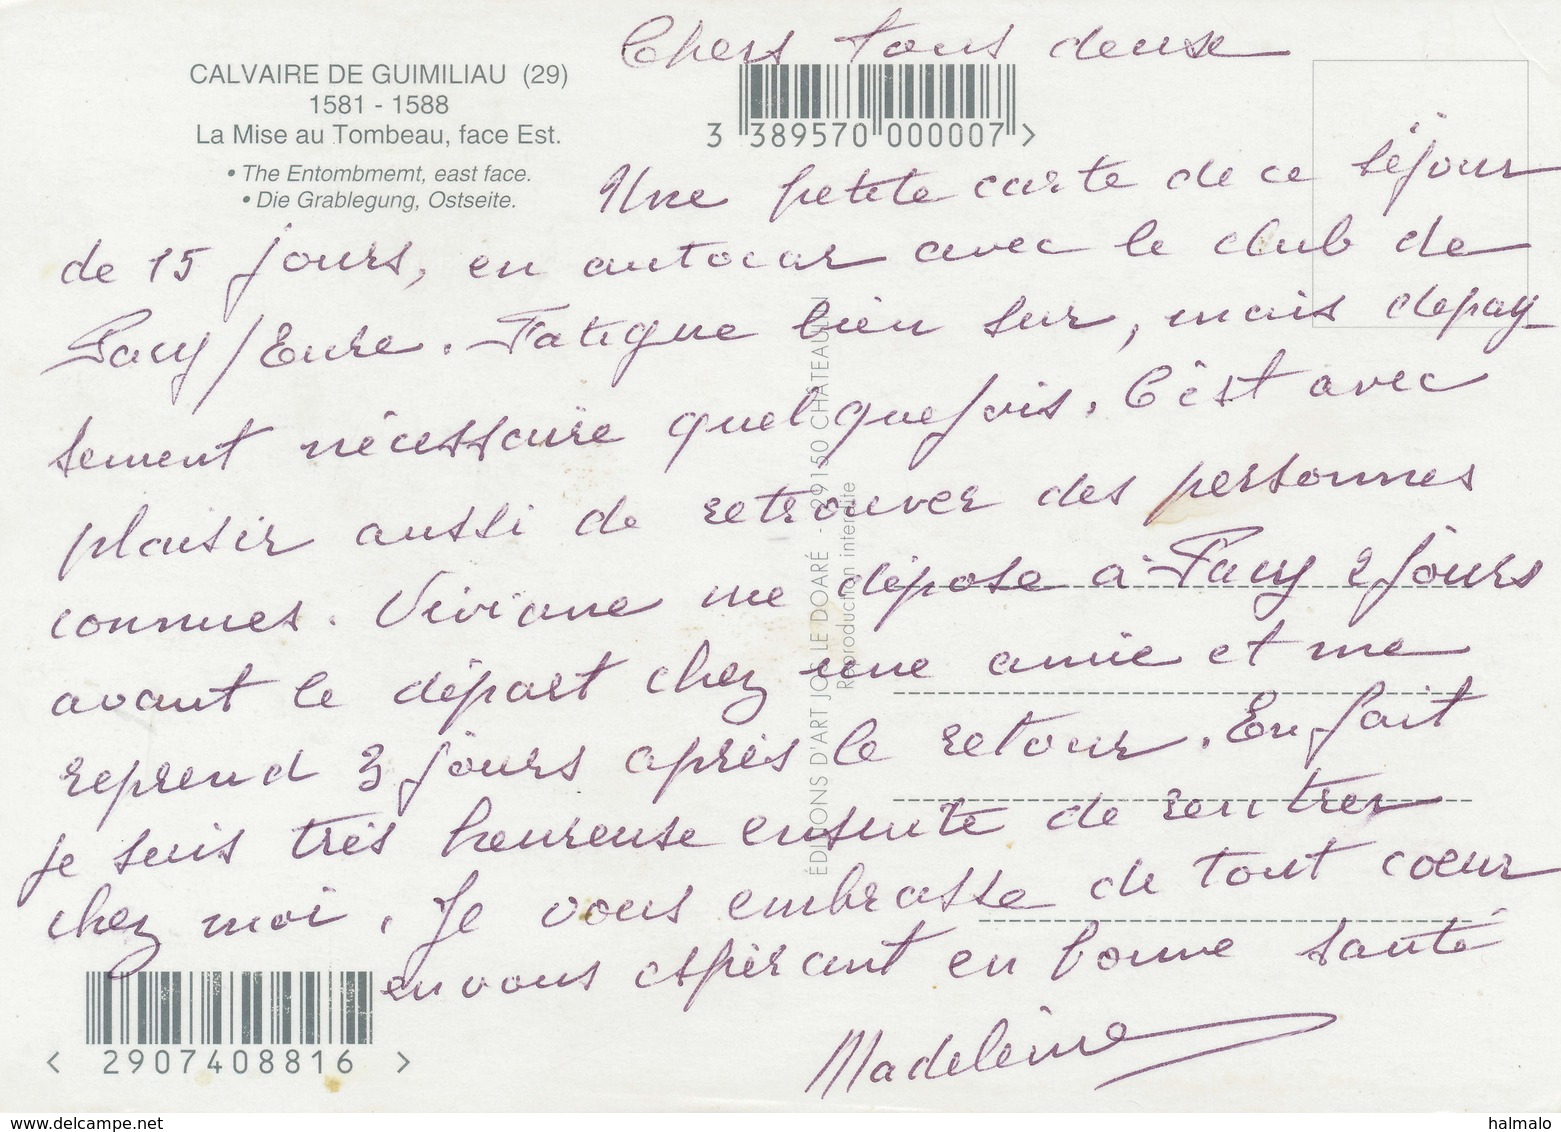 CALVAIRE DE GUIMILIAU (29)
1581 - 1588
La Mise au Tombeau, face Est.
• The Entombmemt, east face.
• Die Grablegung, Ostseite.
3 389570 000007 >
Chers tous deux
Une petite carte de ce séjour
de 15 jours, en autocar avec le club de
Pacy/Eure. Fatigue bien sur, mais depay-
sement nécessaire quelquefois. C'est avec
plaisir aussi de retrouver des personnes
connues. Viviane me dépose à Pacy 2 jours
avant le départ chez une amie et me
reprend 3 jours après le retour. En fait
je suis très heureuse ensuite de rentrer
chez moi. Je vous embrasse de tout coeur
en vous espérant en bonne santé
Madeleine
ÉDITIONS D'ART JOS LE DOARÉ - 29150 CHÂTEAULIN
Reproduction interdite
< 2907408816 >
www.delcampe.net
halmalo